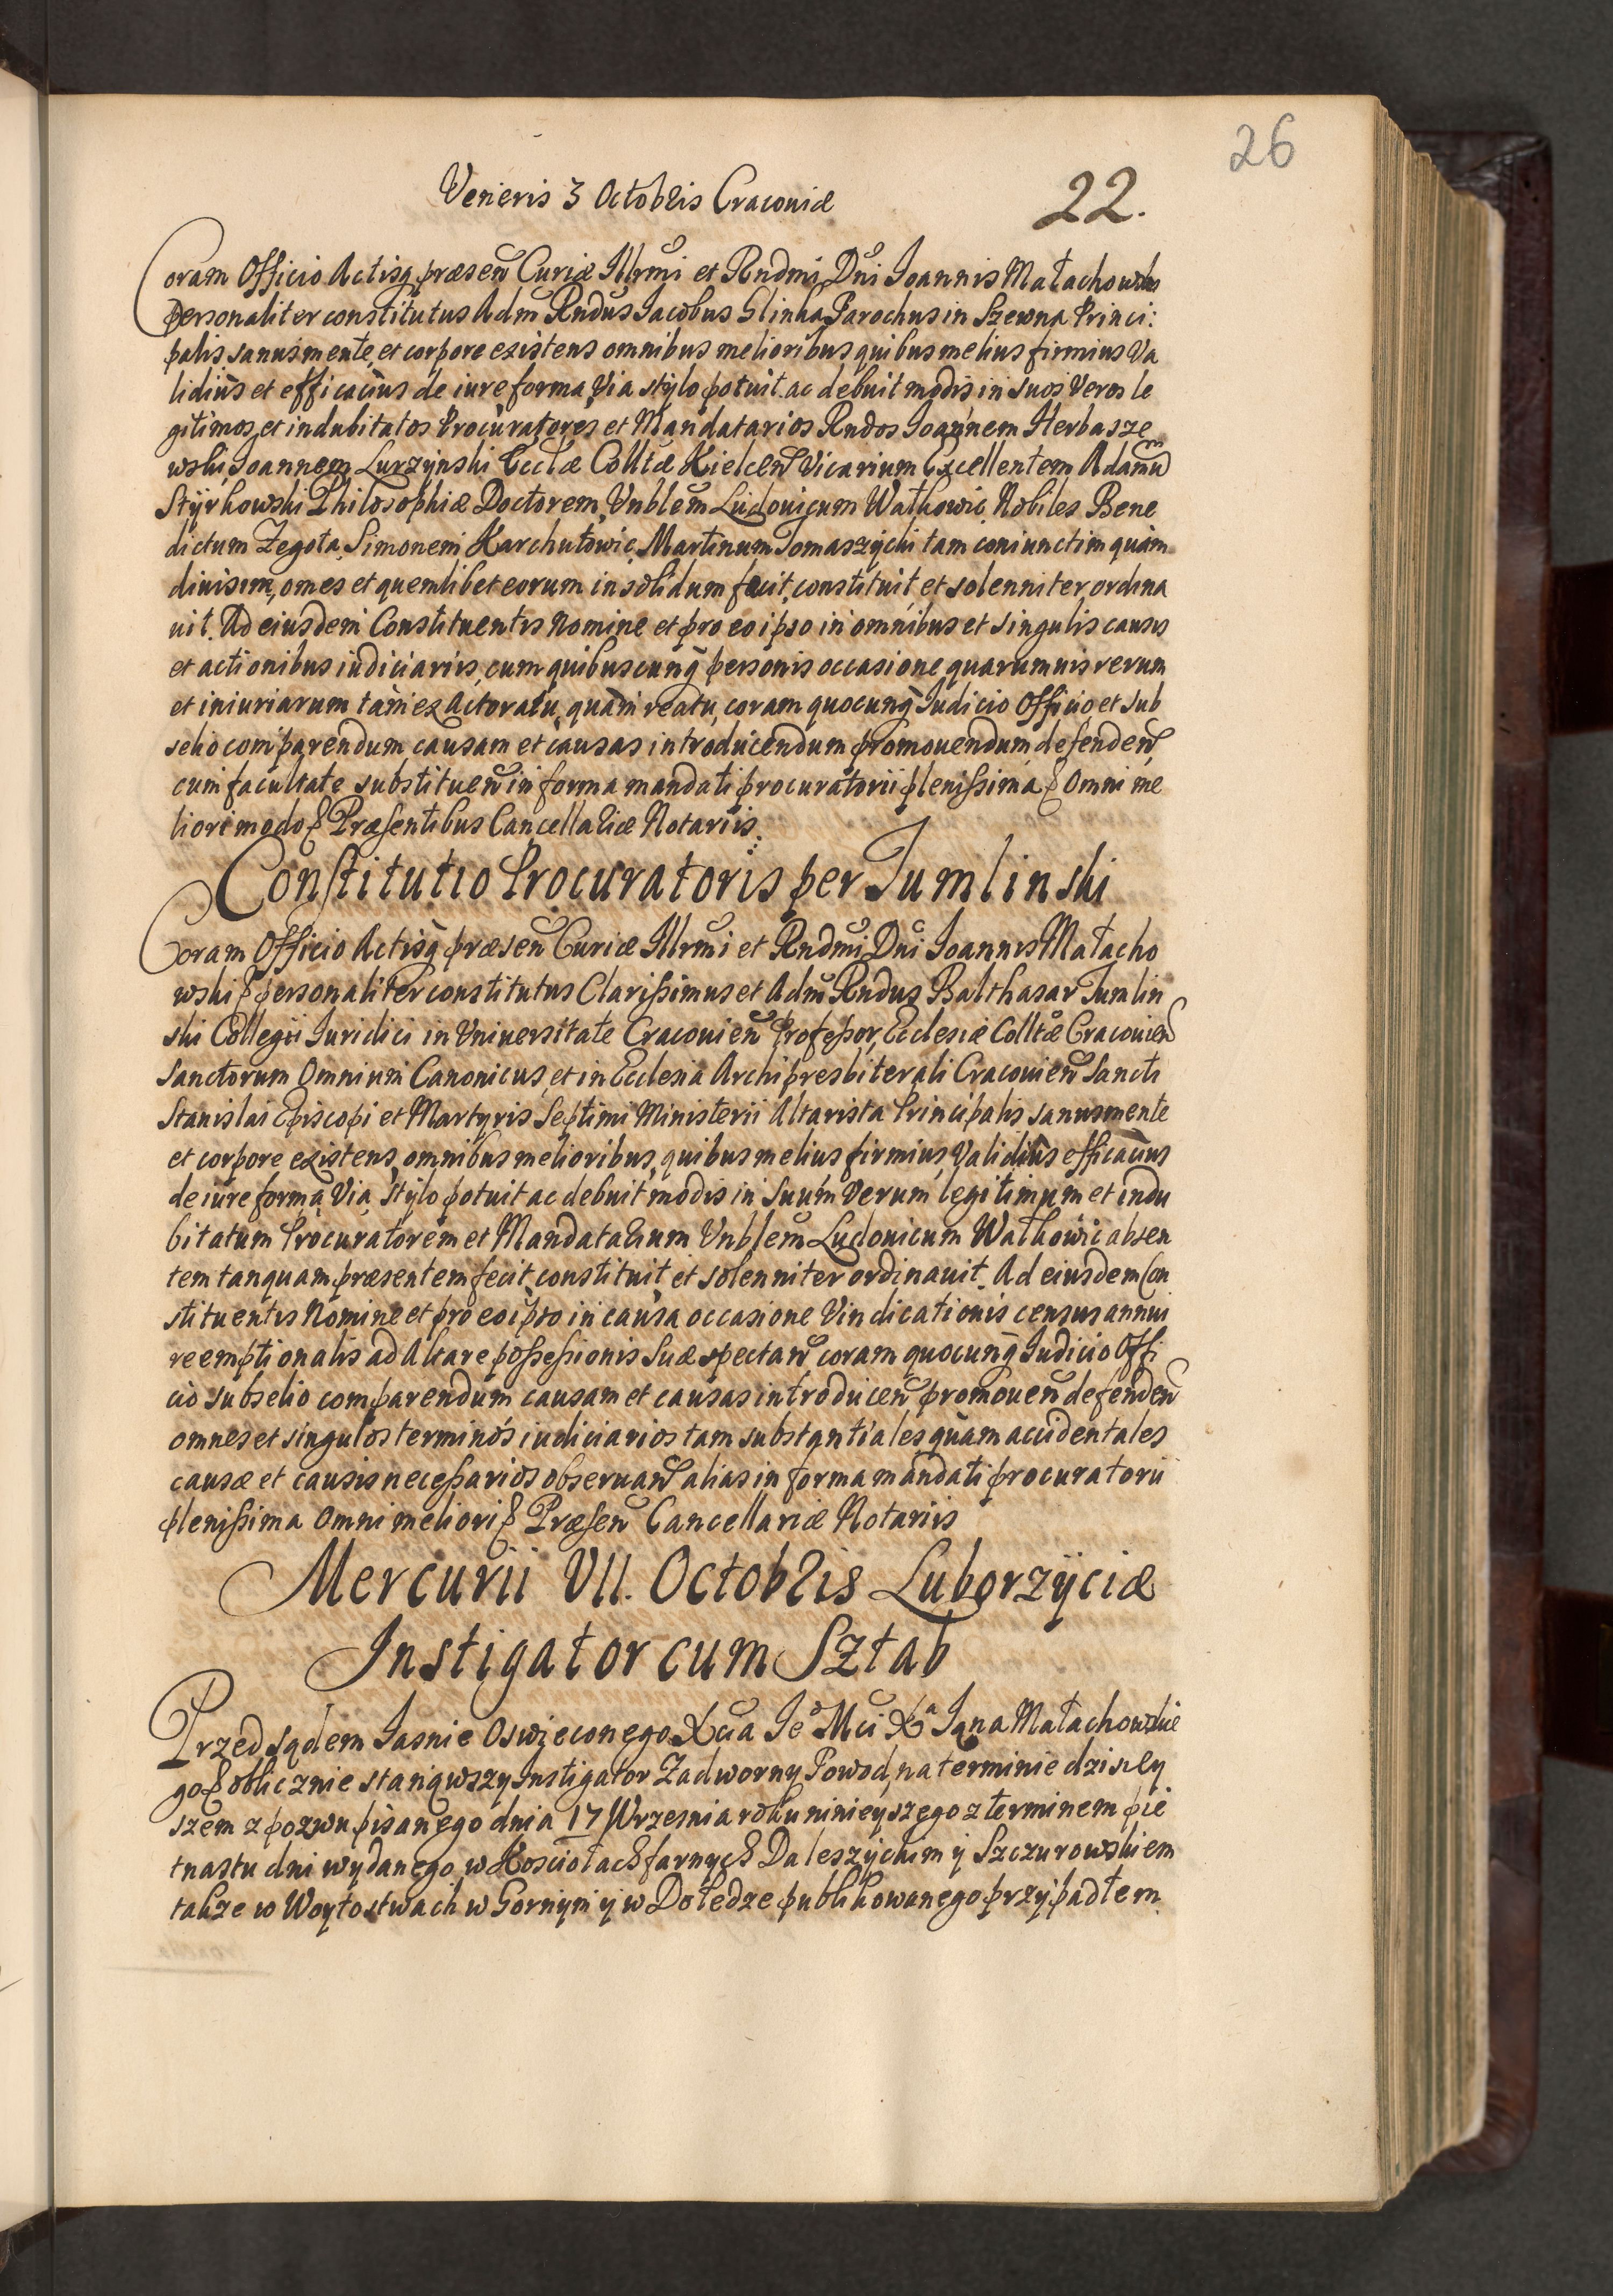 26
Veneris 3 Octobris Cracoviæ
22.
Coram Officio Actisq præsen Curiæ Illrmi et Rndmi Dni Joannis Małachowski
personaliter constitutus Adm Rndus Jacobus Glinka Parochus in Szewna Princi:
palis sanus mente, et corpore existens omnibus melioribus quibus melius firmius Va
lidius et efficacius de iure forma, via stylo potuit ac debuit modis in suos Veros le
gitimos, et indubitatos Procuratores et Mandatarios Rndos Joannem Herbasze
wski, Joannem Lurzynski Eccłæ Colltæ Kielcen Vicarium Excellentem Adamu
Styrkowski Philosophiæ Doctorem, Vnblem Ludouicum Wałkowic, Nobiles Bene
dictum Zegota, Simonem Karchutowic, Martinum Tomaszycki tam coniunctim quàm
diuisim, omes et quemlibet eorum in solidum fecit, constituit, et solenniter ordina
uit. Ad eiusdem Constituentis Nomine et pro eo ipso in omnibus et singulis causis
et actionibus iudiciariis, cum quibuscunq personis occasione quarumuis rerum
et iniuriarum tàm ex Actoratu, quàm reatu, coram quocunq Judicio Officio et sub
selio comparendum, causam et causas introducendum promouendum, defenden
cum facultate substituen in forma mandati procuratorii plenissima & Omni me
liore modo & Præsentibus Cancellariæ Notariis.
Constitutio Procuratoris per Tumlinski
Coram Officio Actisq præsen Curiæ Illrmi et Rndmi Dni Joannis Małacho
wski & personaliter constitutus Clarissimus et Adm Rndus Balthasar Tumlin
ski Collegii Juridici in Vniuersitate Cracouien Professor, Ecclesiæ Colltæ Cracouien
Sanctorum Omnium Canonicus, et in Ecclesia Archipresbiterali Cracouien Sancti
Stanislai Episcopi et Martyris Septimi Ministerii Altarista Principalis sanus mente
et corpore existens, omnibus melioribus, quibus melius firmius, Validius efficacius
de iure forma, Via, stylo potuit ac debuit modis in Suum Verum, legitimum et indu
bitatum Procuratorem et Mandatarium Vnblem Ludouicum Wałkowic absen
tem tanquam præsentem fecit, constituit, et solenniter ordinauit. Ad eiusdem Con
stituentis Nomine et pro eo ipso in causa occasione Vindicationis census annui
reemptionalis ad Altare possessionis Suæ spectan coram quocunq Judicio Offi
cio subselio comparendum causam et causas introducen promouen defenden
omnes et singulos terminos iudiciarios tam substantiales quàm accidentales
causæ et causis necessarios obseruan alias in forma mandati procuratorii
plenissima Omni meliori & Præsen Cancellariæ Notariis
Mercurii VII. Octobris Luborzyciæ
Instigator cum Sztab
Przed sądem Jasnie Oswieconego Xcia Je Mci X Jana Małachowskie
go & oblicznie stanąwszy Instigator Zadworny Powod, na terminie dzisiey
szem z pozwu pisanego dnia 17 Wrzesnia roku ninieyszego z terminem pie
tnastu dni wydanego, w Kosciołach farnych Daleszyckim y Szczurowskiem
takze w Woytostwach w Gornym y w Dołedze publikowanego przypadłem